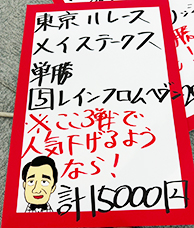 東京11レース
メイステークス
単勝
5レインフロムヘヴン
※ここ3戦で
人気下げるよう
なら!
計15000円